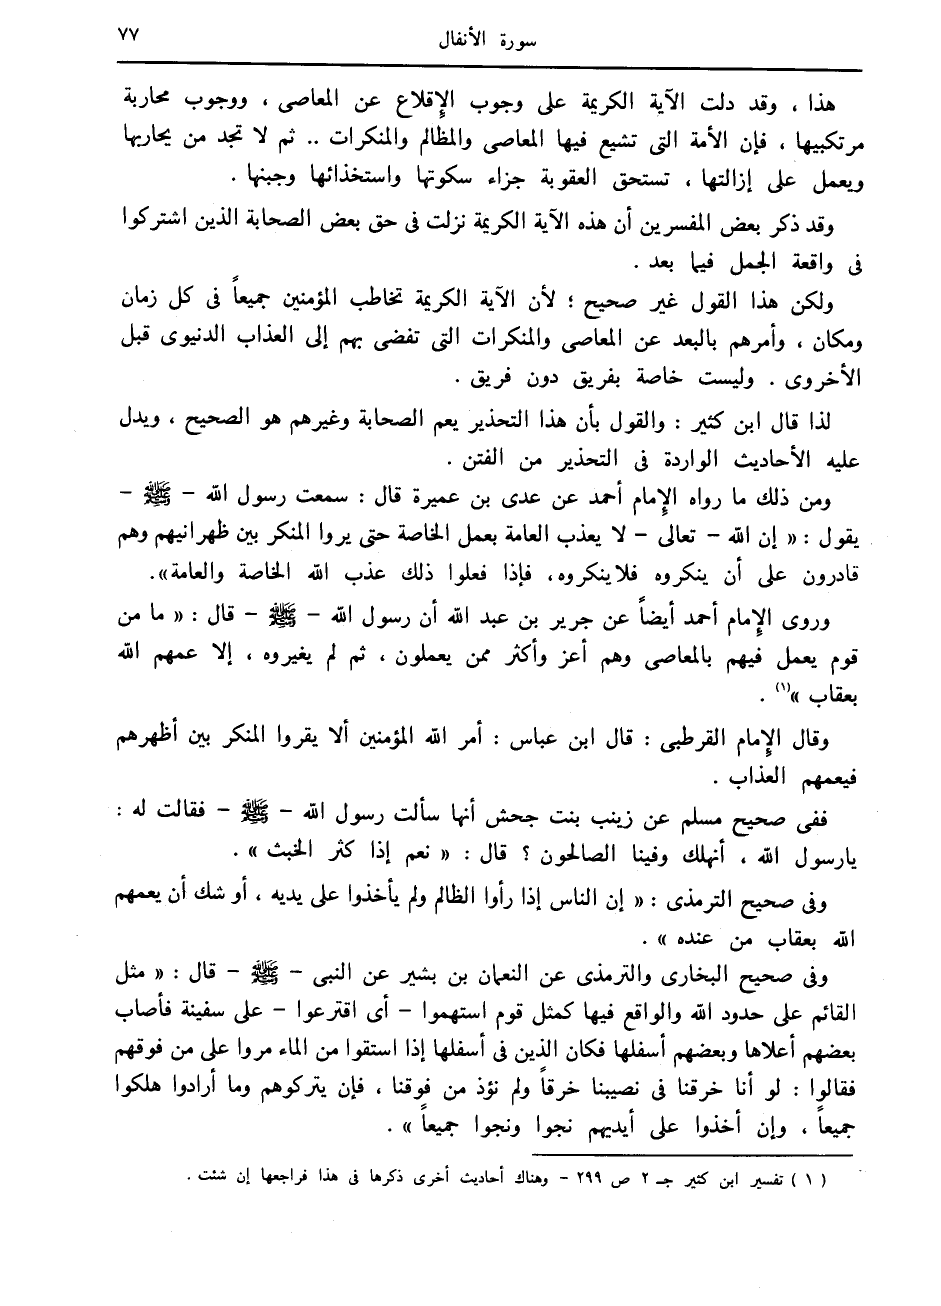 سورة الأنفال ٧٧
هذا ، وقد دلت الآية الكريمة على وجوب الإقلاع عن المعاصى ، ووجوب محاربة
مرتكبيها ، فإن الأمة التى تشيع فيها المعاصى والمظالم والمنكرات .. ثم لا تجد من يحاربها
ويعمل على إزالتها ، تستحق العقوبة جزاء سكوتها واستخذائها وجبنها .
وقد ذكر بعض المفسرين أن هذه الآية الكريمة نزلت فى حق بعض الصحابة الذين اشتركوا
فى واقعة الجمل فيما بعد .
ولكن هذا القول غير صحيح ؛ لأن الآية الكريمة تخاطب المؤمنين جميعاً فى كل زمان
ومكان ، وأمرهم بالبعد عن المعاصى والمنكرات التى تفضى بهم إلى العذاب الدنيوى قبل
الأخروى . وليست خاصة بفريق دون فريق .
لذا قال ابن كثير : والقول بأن هذا التحذير يعم الصحابة وغيرهم هو الصحيح ، ويدل
عليه الأحاديث الواردة فى التحذير من الفتن .
ومن ذلك ما رواه الإمام أحمد عن عدى بن عميرة قال : سمعت رسول الله – ﷺ –
يقول : « إن الله – تعالى – لا يعذب العامة بعمل الخاصة حتى يروا المنكر بين ظهرانيهم وهم
قادرون على أن ينكروه فلاينكروه، فإذا فعلوا ذلك عذب الله الخاصة والعامة».
وروى الإمام أحمد أيضاً عن جرير بن عبد الله أن رسول الله – ﷺ – قال : « ما من
قوم يعمل فيهم بالمعاصى وهم أعز وأكثر ممن يعملون ، ثم لم يغيروه ، إلا عمهم الله
بعقاب »(١) .
وقال الإمام القرطبى : قال ابن عباس : أمر الله المؤمنين ألا يقروا المنكر بين أظهرهم
فيعمهم العذاب .
ففى صحيح مسلم عن زينب بنت جحش أنها سألت رسول الله – ﷺ – فقالت له :
يارسول الله ، أنهلك وفينا الصالحون ؟ قال : « نعم إذا كثر الخبث » .
وفى صحيح الترمذى : « إن الناس إذا رأوا الظالم ولم يأخذوا على يديه ، أو شك أن يعمهم
الله بعقاب من عنده » .
وفى صحيح البخارى والترمذى عن النعمان بن بشير عن النبى – ﷺ – قال : « مثل
القائم على حدود الله والواقع فيها كمثل قوم استهموا – أى اقترعوا – على سفينة فأصاب
بعضهم أعلاها وبعضهم أسفلها فكان الذين فى أسفلها إذا استقوا من الماء مروا على من فوقهم
فقالوا : لو أنا خرقنا فى نصيبنا خرقاً ولم نؤذ من فوقنا ، فإن يتركوهم وما أرادوا هلكوا
جميعاً ، وإن أخذوا على أيديهم نجوا ونجوا جميعاً » .
( ١ ) تفسير ابن كثير جـ ٢ ص ٢٩٩ – وهناك أحاديث أخرى ذكرها فى هذا فراجعها إن شئت .